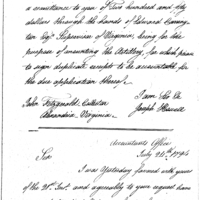 a remittance to you of Two hundred and fifty
dollars through the hands of Edward Carring-
ton Esqr Supervisor of Virginia, being for the
purpose of mounting the Artillery, for which please
to sign duplicate receipts to be accountable for
the due application thereof.
I am Sir &c
John Fitzgerald, Collector
Joseph Howell
Alexandria, Virginia
Accountants Office
July 24th 1794
Sir
I was Yesterday favored with yours
of the 21st Inst. and agreeably to your request have